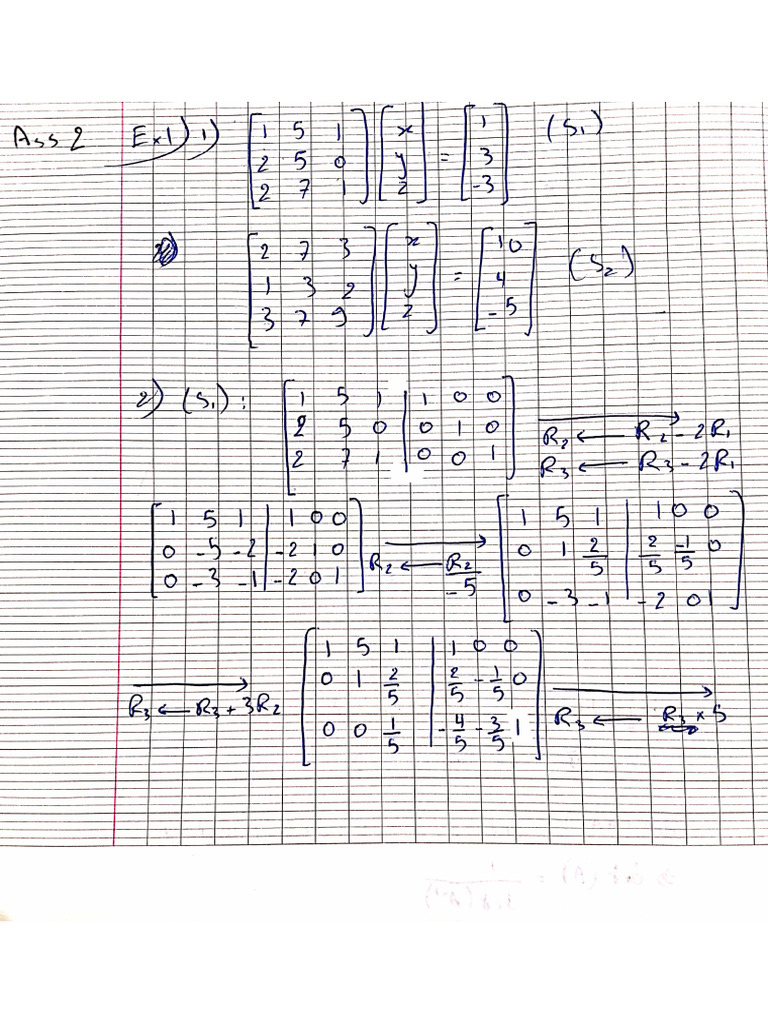 Ass 2 Ex1) 1) [1 5 1; 2 5 0; 2 7 1] [x; y; z] = [1; 3; -3] (S₁)
[2 7 3; 1 3 2; 3 7 9] [x; y; z] = [10; 4; -5] (S₂)
2) (S₁): [1 5 1 | 1 0 0; 2 5 0 | 0 1 0; 2 7 1 | 0 0 1] → R₂ ← R₂ - 2R₁ R₃ ← R₃ - 2R₁
[1 5 1 | 1 0 0; 0 -5 -2 | -2 1 0; 0 -3 -1 | -2 0 1] → R₂ ← R₂/-5 [1 5 1 | 1 0 0; 0 1 2/5 | 2/5 -1/5 0; 0 -3 -1 | -2 0 1]
→ R₃ ← R₃ + 3R₂ [1 5 1 | 1 0 0; 0 1 2/5 | 2/5 -1/5 0; 0 0 1/5 | -4/5 -3/5 1] → R₃ ← R₃ × 5